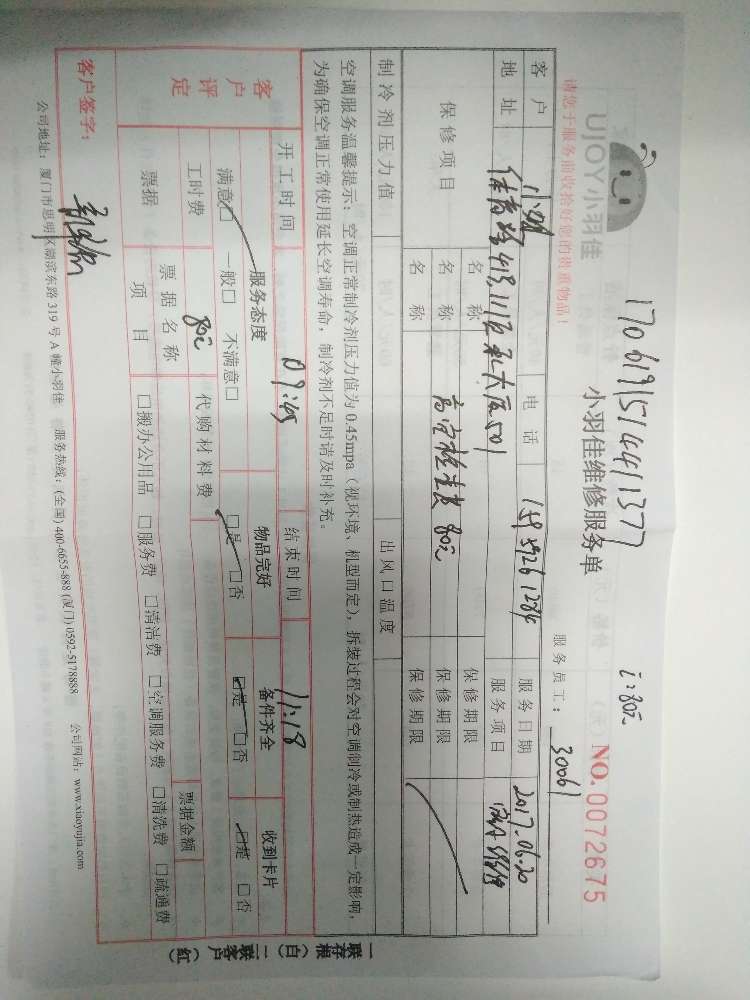 1706191514411377
i:80元
UJOY小羽佳
小羽佳维修服务单
NO.0072675
请您于服务前收拾好您的贵重物品！
服务员工：30061
客户
电话 159 5926 1284
服务日期 2017.06.20
地址
服务项目
保修项目
名称
保修期限
名称
保修期限
名称
保修期限
制冷剂压力值
出风口温度
空调服务温馨提示：空调正常制冷剂压力值为0.45mpa（视环境、机型而定），拆装过程会对空调制冷或制热造成一定影响，
为确保空调正常使用延长空调寿命，制冷剂不足时请及时补充。
开工时间 09:45
结束时间 11:18
客户评定
服务态度
物品完好
备件齐全
收到卡片
满意□ 一般□ 不满意□
□是 □否
□是 □否
□是 □否
工时费 80元
代购材料费
票据
票据名称
票据金额
项目
□搬办公用品 □服务费 □清洁费 □空调服务费 □清洗费 □疏通费
客户签字：
公司地址：厦门市思明区湖滨东路319号A幢小羽佳
服务热线：(全国) 400-6655-888 (厦门) 0592-5178888
公司网站：www.xiaoyujia.com
一联存根（白） 二联客户（红）